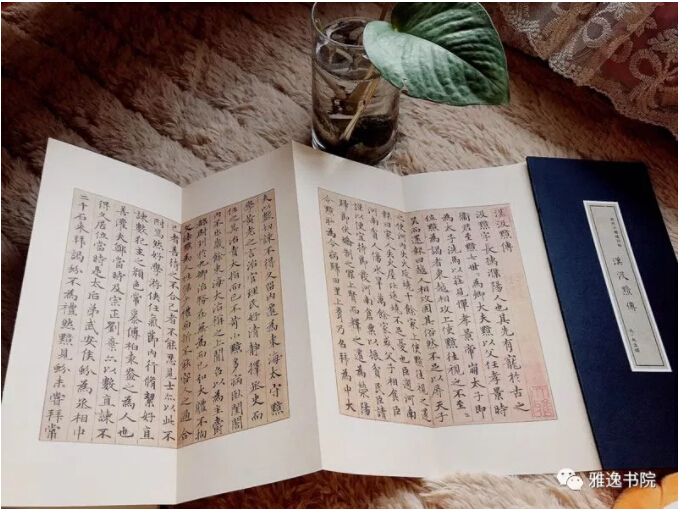 漢汲黯傳
汲黯字長孺濮陽人也其先有寵於古之
衛君至黯七世為卿大夫黯以父任孝景時
為太子洗馬以莊見憚孝景帝崩太子即
位黯為謁者東越相攻上使黯往視之不至
吳而還報曰越人相攻固其俗然不足以辱天子
之使河內失火延燒千餘家上使黯往視之還
報曰家人失火屋比延燒不足憂也臣過河南
河南貧人傷水旱萬餘家或父子相食臣
謹以便宜持節發河南倉粟以振貧民臣請
歸節伏矯制之罪上賢而釋之遷為滎陽
令黯恥為令病歸田里上聞乃召拜為中大
夫以數切諫不得久留內遷為東海太守黯
學黃老之言治官理民好清靜擇丞史而
任之其治責大指而已不苛小黯多病臥閨閤
內不出歲餘東海大治稱之上聞召以為主爵
都尉列於九卿治務在無為而已弘大體不拘
文法黯為人性倨少禮面折不能容人之過合
己者善待之不合己者不能忍見士亦以此不
附焉然好學游俠任氣節內行脩絜好直
諫數犯主之顏色常慕傅柏袁盎之為人也
善灌夫鄭當時及宗正劉棄亦以數直諫不
得久居位當時是太后弟武安侯蚡為丞相中
二千石來拜謁蚡不為禮然黯見蚡未嘗拜常
漢汲黯傳
雅逸书院